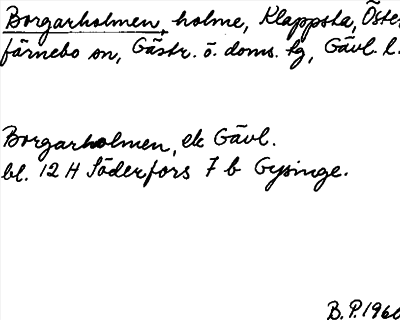 Borgarholmen, holme, Klappsta, Öster
färnebo sn, Gästr. ö. doms. lg, Gävl. l.
Borgarholmen, ek Gävl.
bl. 12 H Söderfors 7 b Gysinge.
B.P. 1960